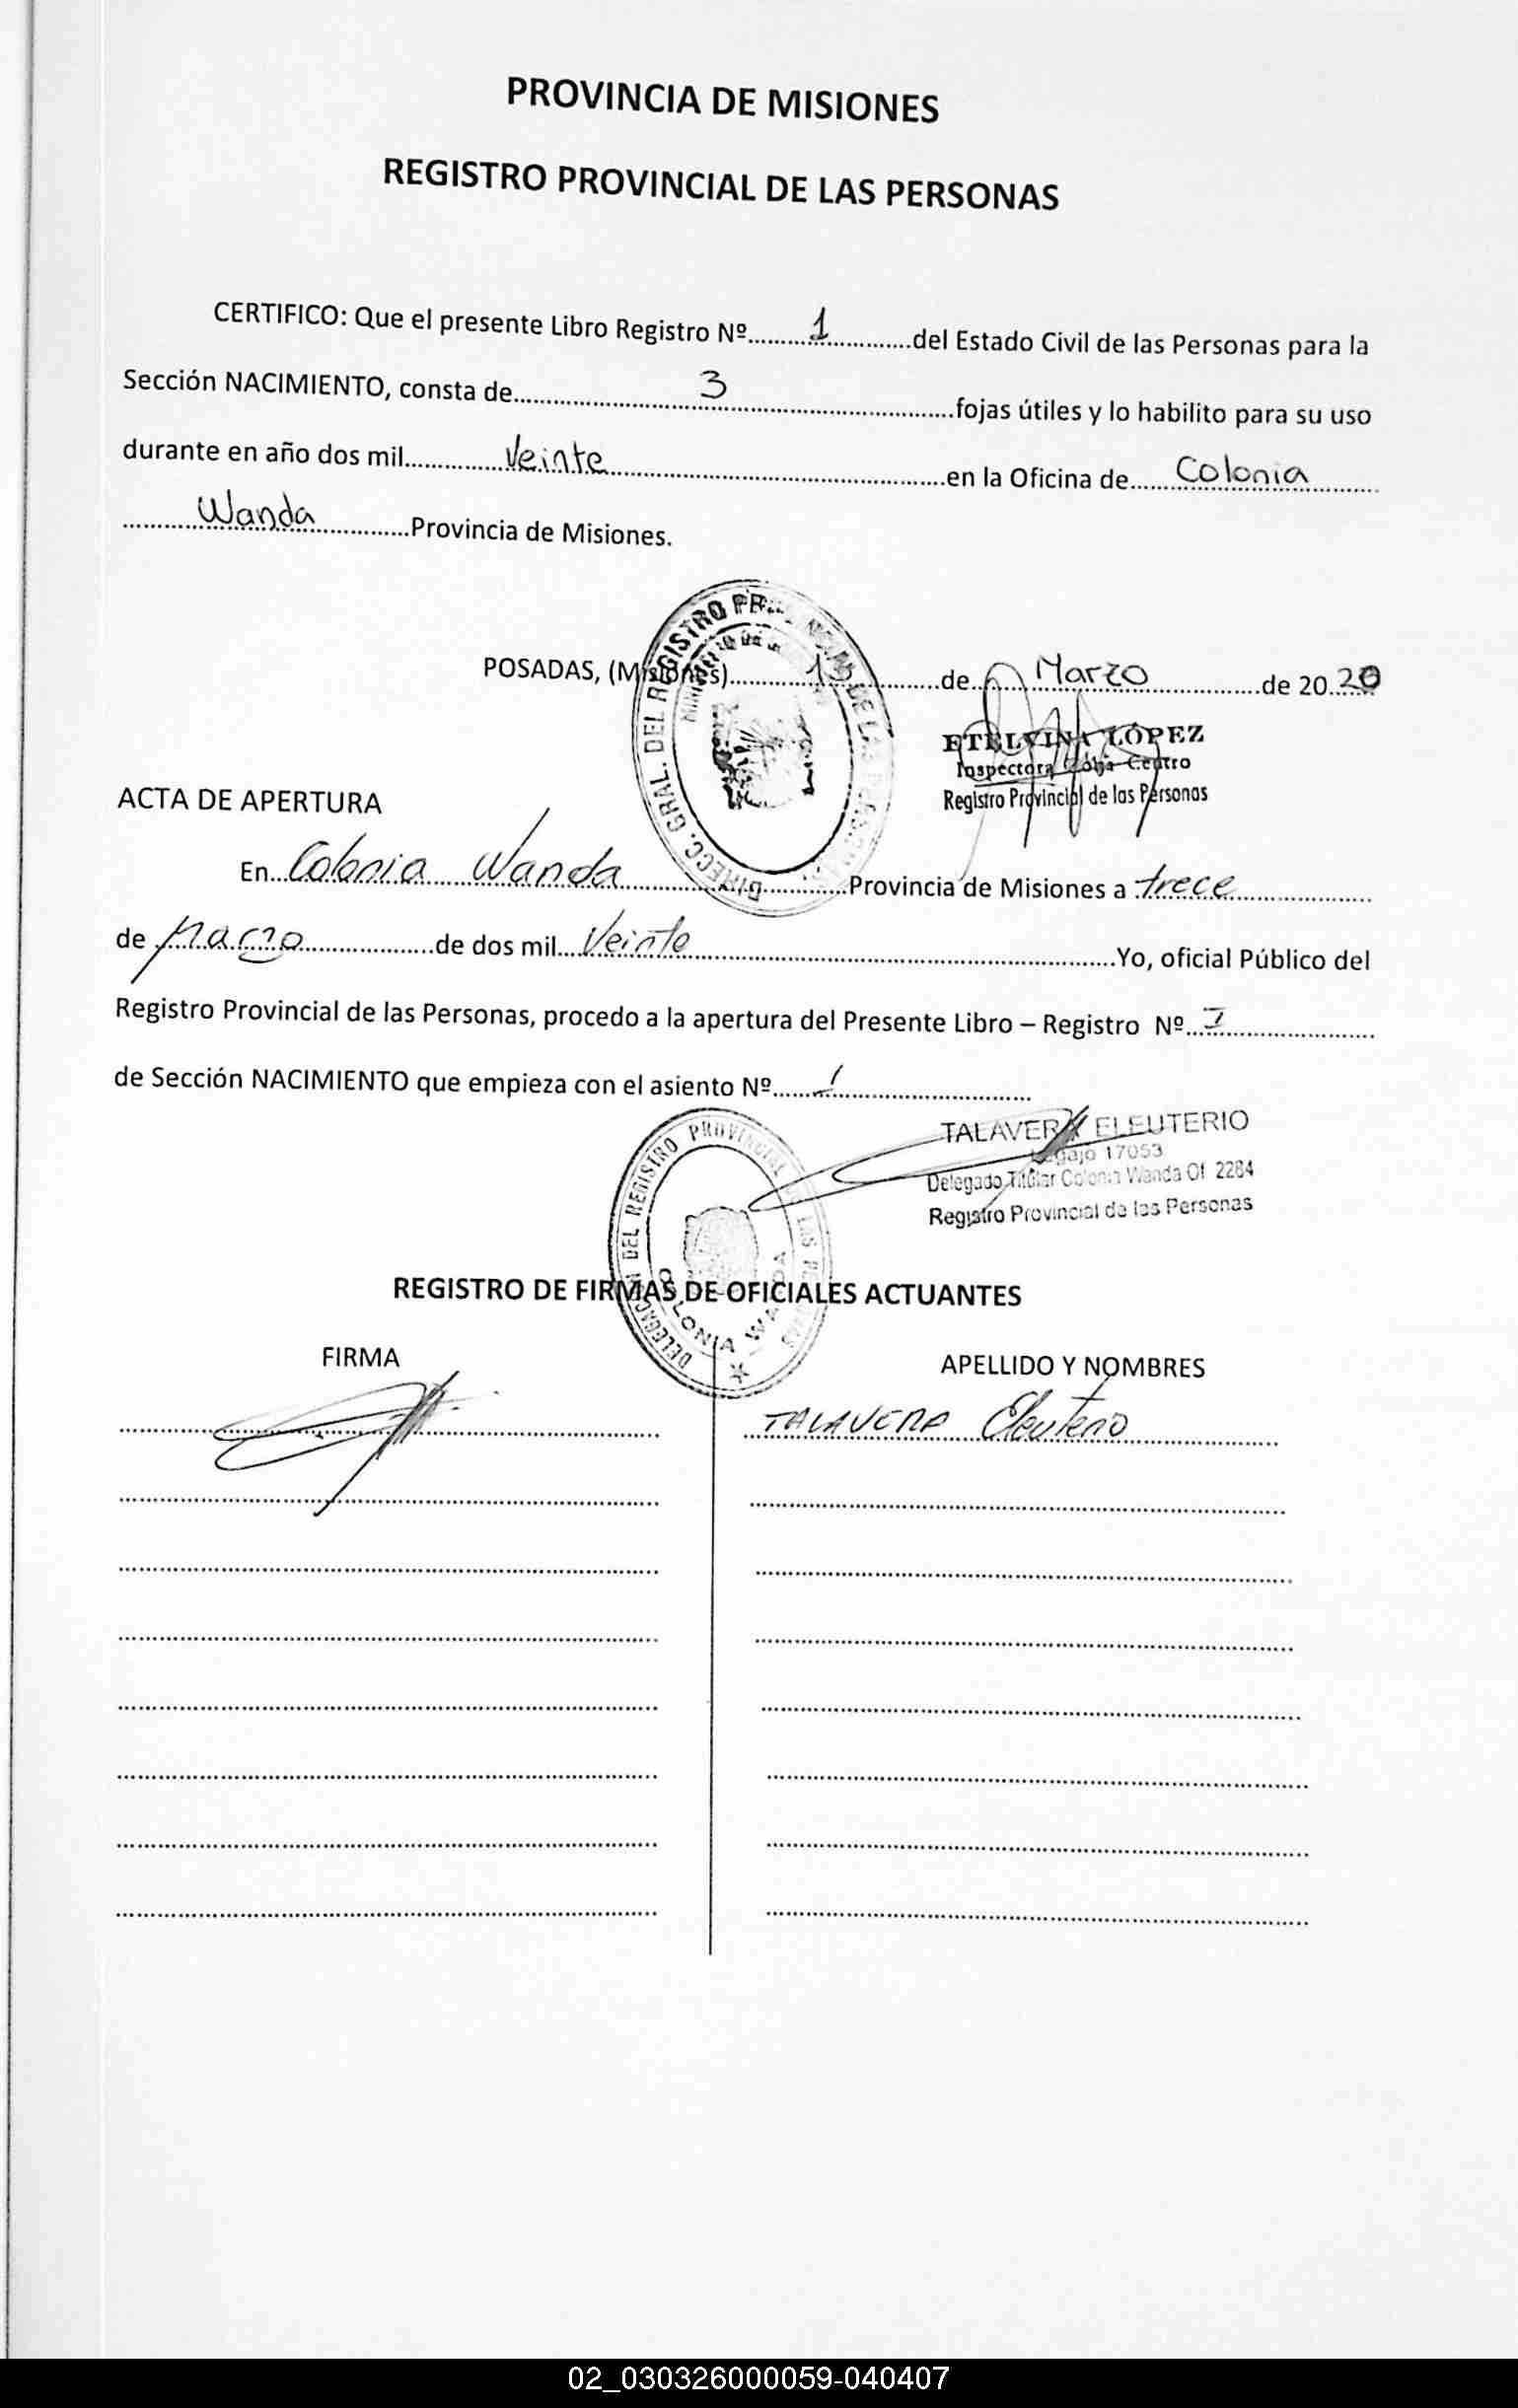 PROVINCIA DE MISIONES
REGISTRO PROVINCIAL DE LAS PERSONAS
CERTIFICO: Que el presente Libro Registro Nº 1 del Estado Civil de las Personas para la
Sección NACIMIENTO, consta de 3 fojas útiles y lo habilito para su uso
durante en año dos mil Veinte en la Oficina de Colonia
Wanda Provincia de Misiones.
POSADAS, (Misiones) 13 de Marzo de 2020
DIRECC. GRAL. DEL REGISTRO PROVINCIAL DE LAS PERSONAS
ETELVINA LÓPEZ
Inspectora Zona Centro
Registro Provincial de las Personas
ACTA DE APERTURA
En Colonia Wanda Provincia de Misiones a trece
de Marzo de dos mil Veinte Yo, oficial Público del
Registro Provincial de las Personas, procedo a la apertura del Presente Libro – Registro Nº 1
de Sección NACIMIENTO que empieza con el asiento Nº 1
TALAVERA ELEUTERIO
Legajo 17053
Delegado Titular Colonia Wanda Of 2284
Registro Provincial de las Personas
DELEGACION DEL REGISTRO PROVINCIAL DE LAS PERSONAS
COLONIA WANDA
REGISTRO DE FIRMAS DE OFICIALES ACTUANTES
FIRMA APELLIDO Y NOMBRES
TALAVERA Eleuterio
02_030326000059-040407